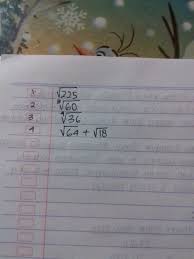 √225
2 √60
3 √36
4 √64 + √18